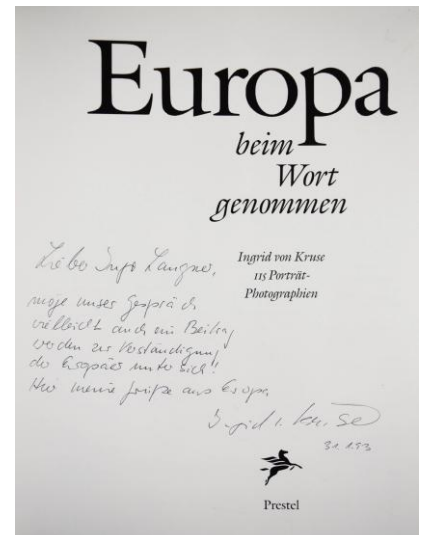 Europa
beim
Wort
genommen
Ingrid von Kruse
115 Porträt-
Photographien
Lieber Ingo Langner,
möge unser Gespräch
vielleicht auch ein Beitrag
werden zur Verständigung
der Europäer unter sich!
Hier meine Grüße aus Europa.
Ingrid v. Kruse
31.1.93
Prestel